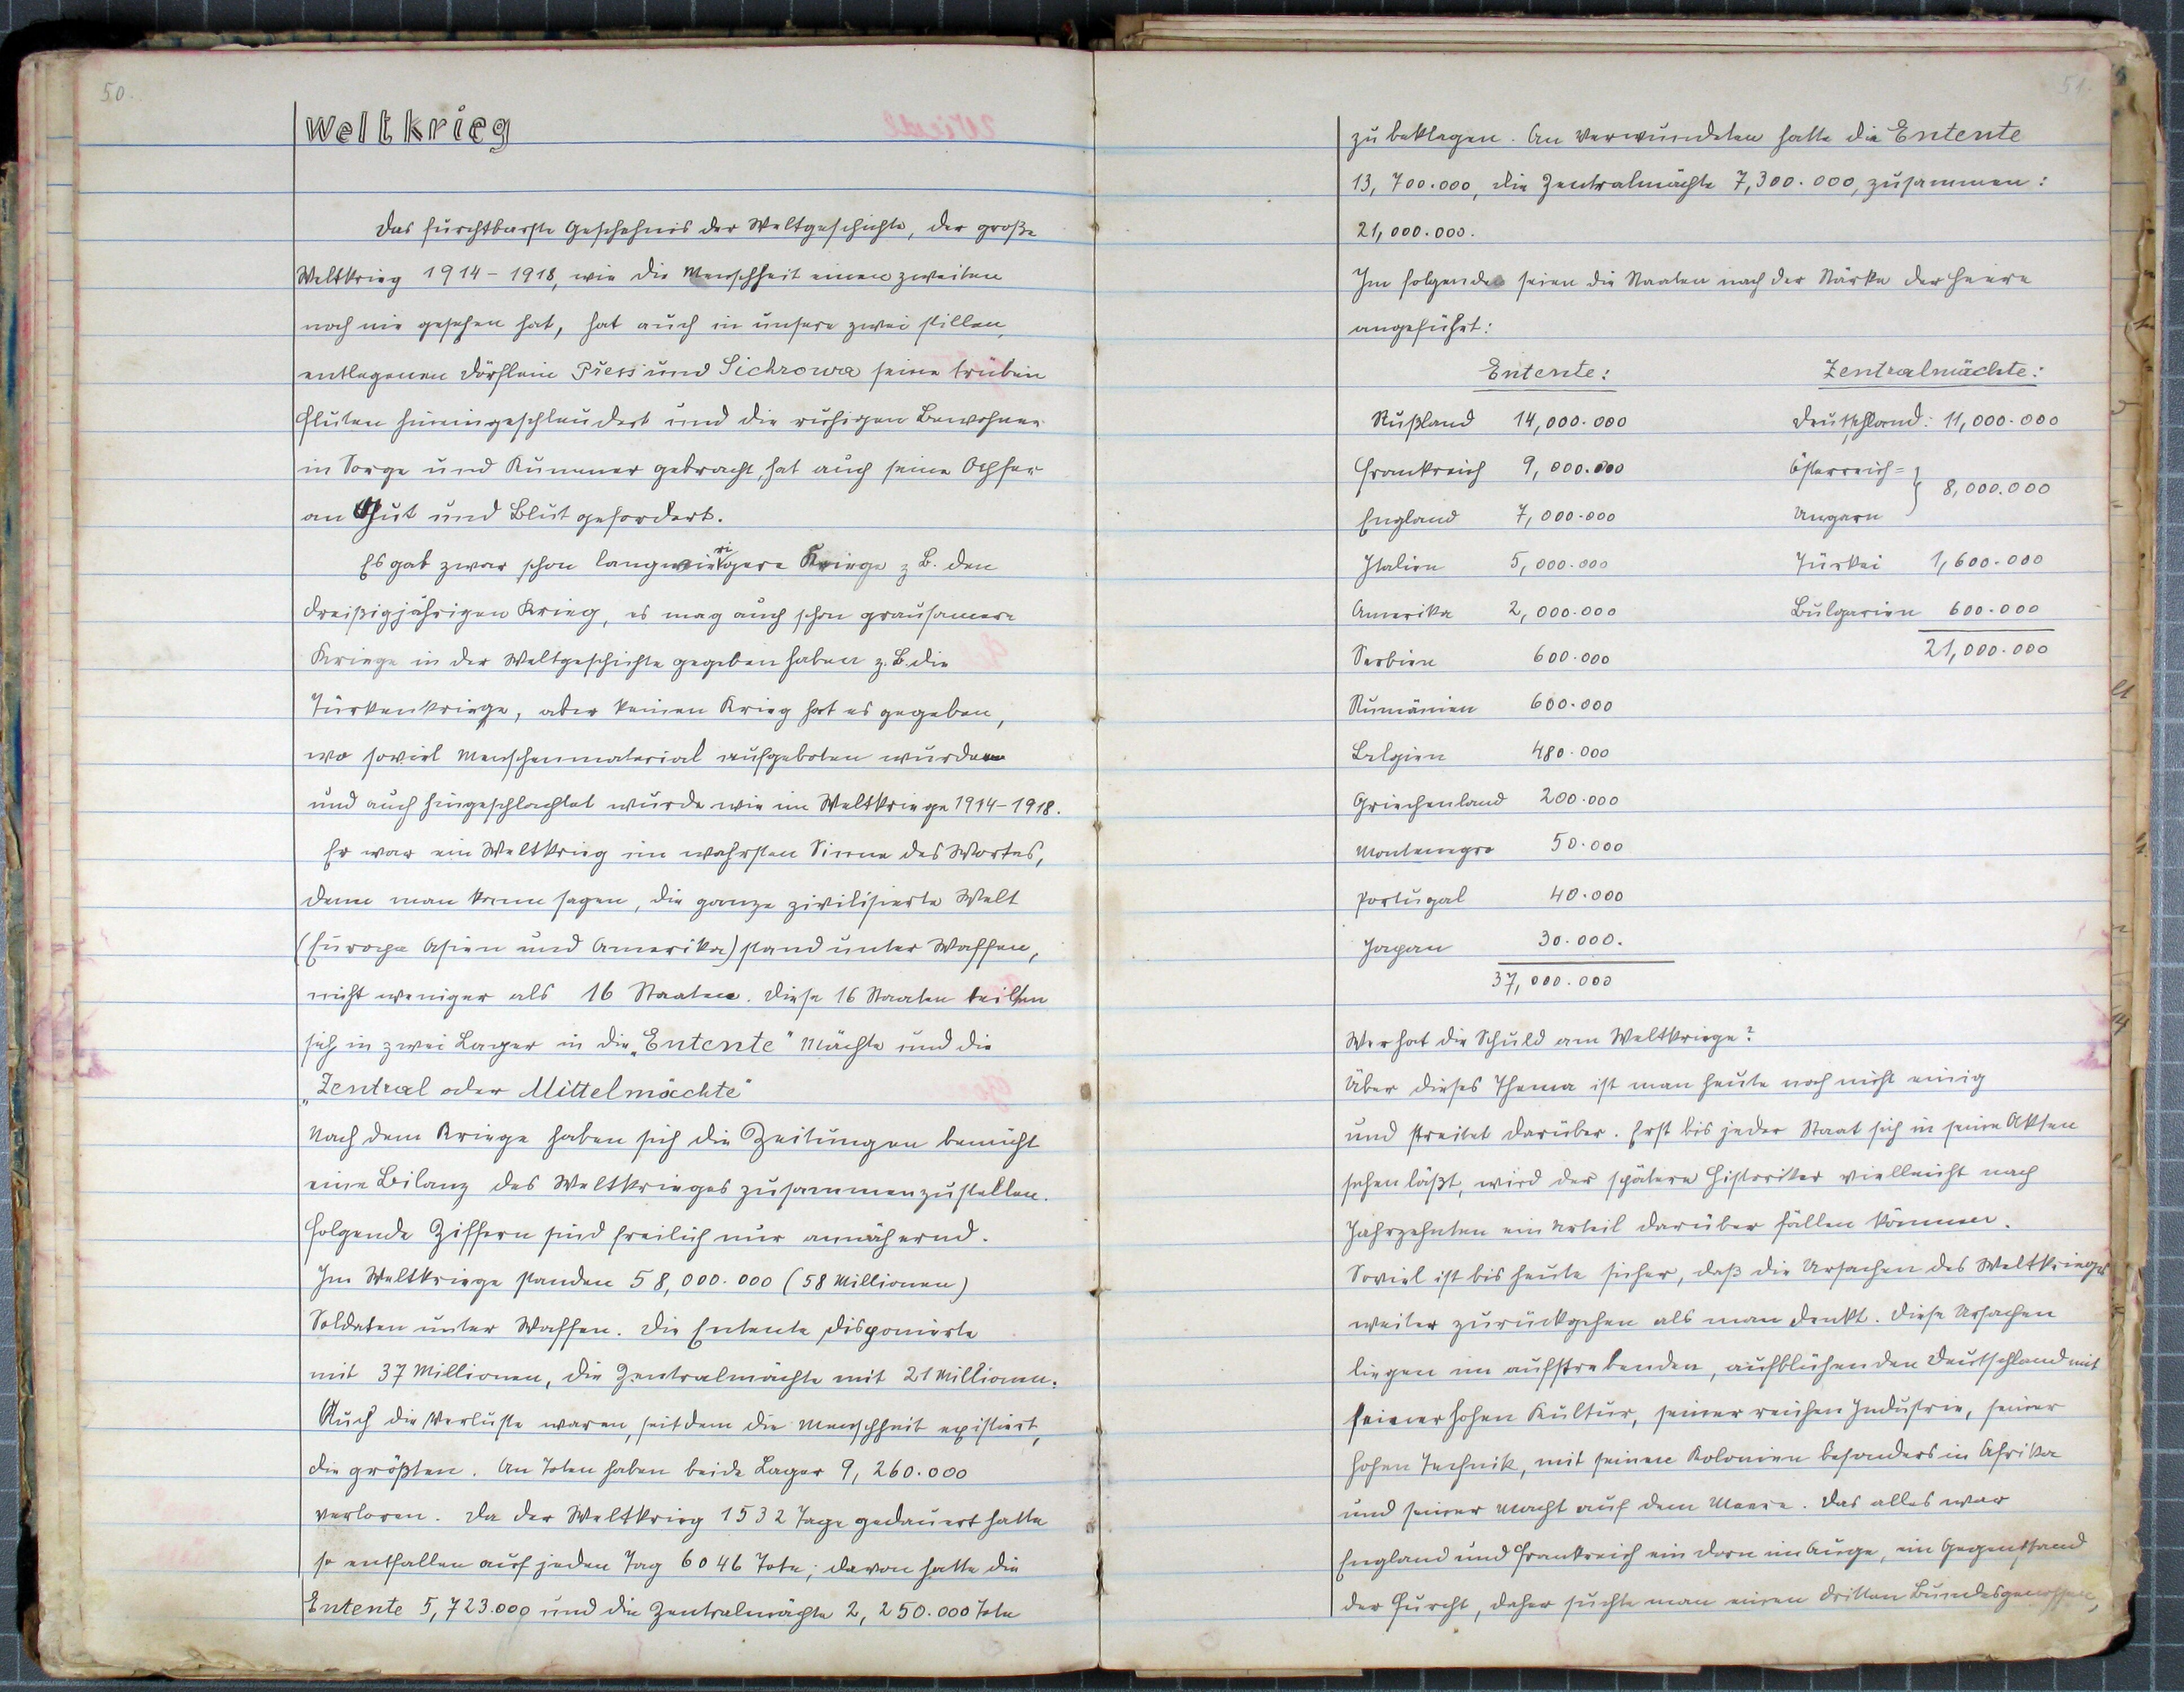 50.
Weltkrieg
Das furchtbarste Geschehnis der Weltgeschichte, der große
Weltkrieg 1914-1918, wie die Menschheit einen zweiten
noch nie gesehen hat, hat auch in unsere zwei stillen,
entlegenen Dörflein Přess und Sichrowa seine trüben
Fluten hineingeschleudert und die ruhigen Bewohner
in Sorge und Kummer gebracht, hat auch seine Opfer
an Gut und Blut gefordert.
Es gab zwar schon langwierigere Kriege z B. den
dreißigjährigen Krieg, es mag auch schon grausamere
Kriege in der Weltgeschichte gegeben haben z. B. die
Türkenkriege, aber keinen Krieg hat es gegeben,
wo soviel Menschenmaterial aufgeboten wurde
und auch hingeschlachtet wurde wie im Weltkriege 1914-1918.
Er war ein Weltkrieg im wahrsten Sinne des Wortes,
denn man kann sagen, die ganze zivilisierte Welt
(Europa Asien und Amerika) stand unter Waffen,
nicht weniger als 16 Staaten. Diese 16 Staaten teilten
sich in zwei Lager in die „Entente" Mächte und die
„Zentral oder Mittelmächte"
Nach dem Kriege haben sich die Zeitungen bemüht
eine Bilanz des Weltkrieges zusammenzustellen.
Folgende Ziffern sind freilich nur annähernd.
Im Weltkriege standen 58,000.000 (58 Millionen)
Soldaten unter Waffen. Die Entente disponierte
mit 37 Millionen, die Zentralmächte mit 21 Millionen.
Auch die Verluste waren, seitdem die Menschheit existiert,
die größten. An Toten haben beide Lager 9,260.000
verloren. Da der Weltkrieg 1532 Tage gedauert hatte
so entfallen auf jeden Tag 6046 Tote; davon hatte die
Entente 5,723.000 und die Zentralmächte 2,250.000 Tote
51.
zu beklagen. An Verwundeten hatte die Entente
13,700.000, die Zentralmächte 7,300.000, zusammen:
21,000.000.
Im folgenden seien die Staaten nach der Stärke der Heere
angeführt:
Entente: Zentralmächte:
Rußland 14,000.000 Deutschland: 11,000.000
Frankreich 9,000.000 Österreich=
8,000.000
England 7,000.000 Ungarn
Italien 5,000.000 Türkei 1,600.000
Amerika 2,000.000 Bulgarien 600.000
Serbien 600.000 21,000.000
Rumänien 600.000
Belgien 480.000
Griechenland 200.000
Montenegro 50.000
Portugal 40.000
Japan 30.000.
37,000.000
Wer hat die Schuld am Weltkriege?
Über dieses Thema ist man heute noch nicht einig
und streitet darüber. Erst bis jeder Staat sich in seine Akten
sehen läßt, wird der spätere Historiker vielleicht nach
Jahrzehnten ein Urteil darüber fällen können.
Soviel ist bis heute sicher, daß die Ursachen des Weltkrieges
weiter zurückgehen als man denkt. Diese Ursachen
liegen im aufstrebenden, aufblühenden Deutschland mit
seiner hohen Kultur, seiner reichen Industrie, seiner
hohen Technik, mit seinen Kolonien besonders in Afrika
und seiner Macht auf dem Meere. Das alles war
England und Frankreich ein Dorn im Auge, ein Gegenstand
der Furcht, daher suchte man einen dritten Bundesgenossen,